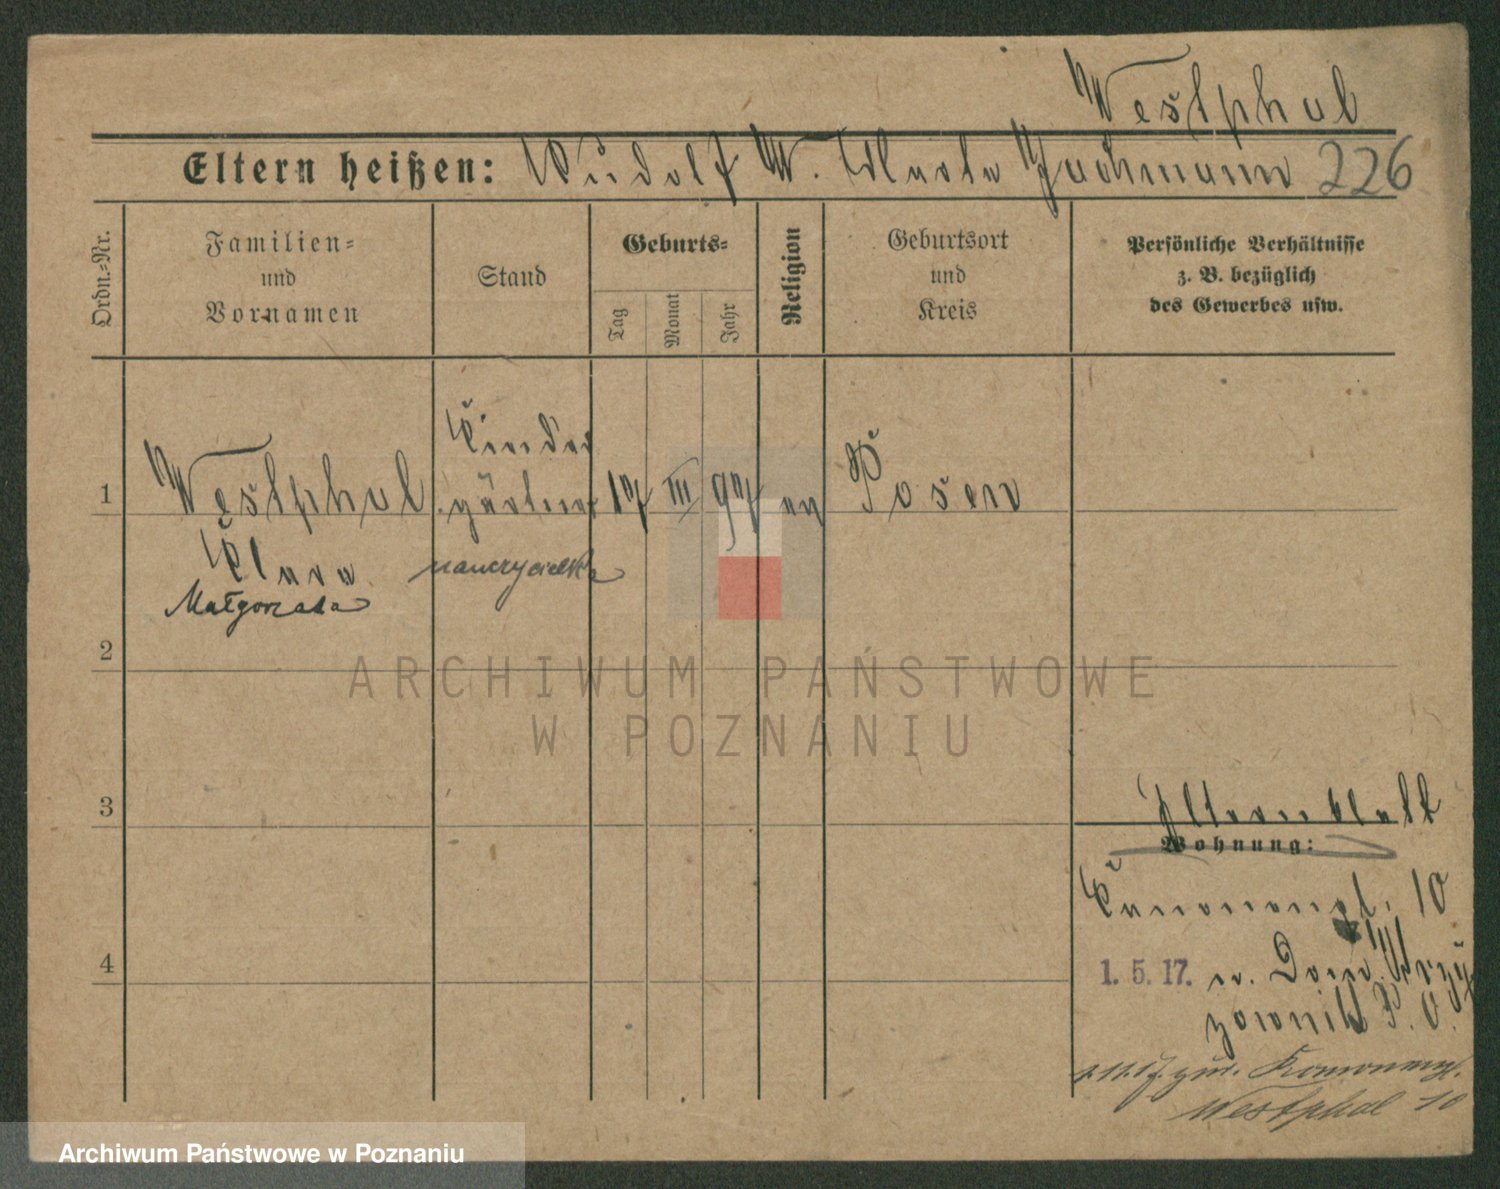 Westphal
Eltern heißen: Rudolf W. Marta Jachmann 226
Ordn.-Nr.
Familien-
und
Vornamen
Stand
Geburts-
Tag
Monat
Jahr
Religion
Geburtsort
und
Kreis
Persönliche Verhältnisse
z. B. bezüglich
des Gewerbes usw.
1
Westphal
Klara
Małgorzata
Kinder
gärtner
nauczycielka
17 III 97 ev
Posen
2
ARCHIWUM PAŃSTWOWE
W POZNANIU
3
Elternblatt
Wohnung:
10
4
1. 5. 17. n. Dom.
P. O.
zur.
Westphal 10
Archiwum Państwowe w Poznaniu